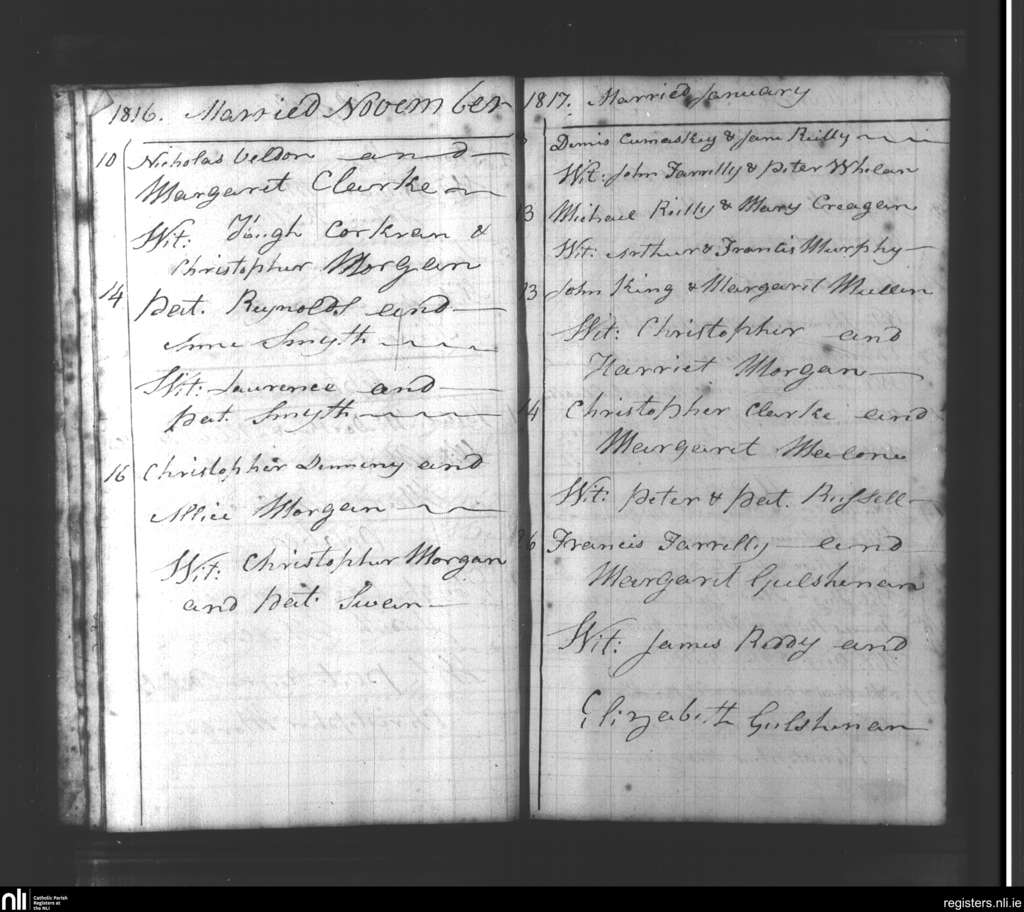 1816. Married November
10 Nicholas Veldon and
Margaret Clarke
Wit: Corkran &
Christopher Morgan
14 Pat. Reynolds and
Anne Smyth
Wit: Laurence and
Pat. Smyth
16 Christopher Dinneny and
Allice Morgan
Wit: Christopher Morgan
and Pat. Swan
1817. Married January
Dennis Cumaskey & Jane Reilly
Wit: John Farrelly & Peter Whelan
13 Michael Reilly & Mary Creagan
Wit: Arthur & Francis Murphy
23 John King & Margaret Mullen
Wit: Christopher and
Harriet Morgan
24 Christopher Clarke and
Margaret Malone
Wit: Peter & Pat. Russell
26 Francis Farrelly and
Margaret Gulshenan
Wit: James Roddy and
Elizabeth Gulshenan
nli Catholic Parish
Registers at
the NLI
registers.nli.ie